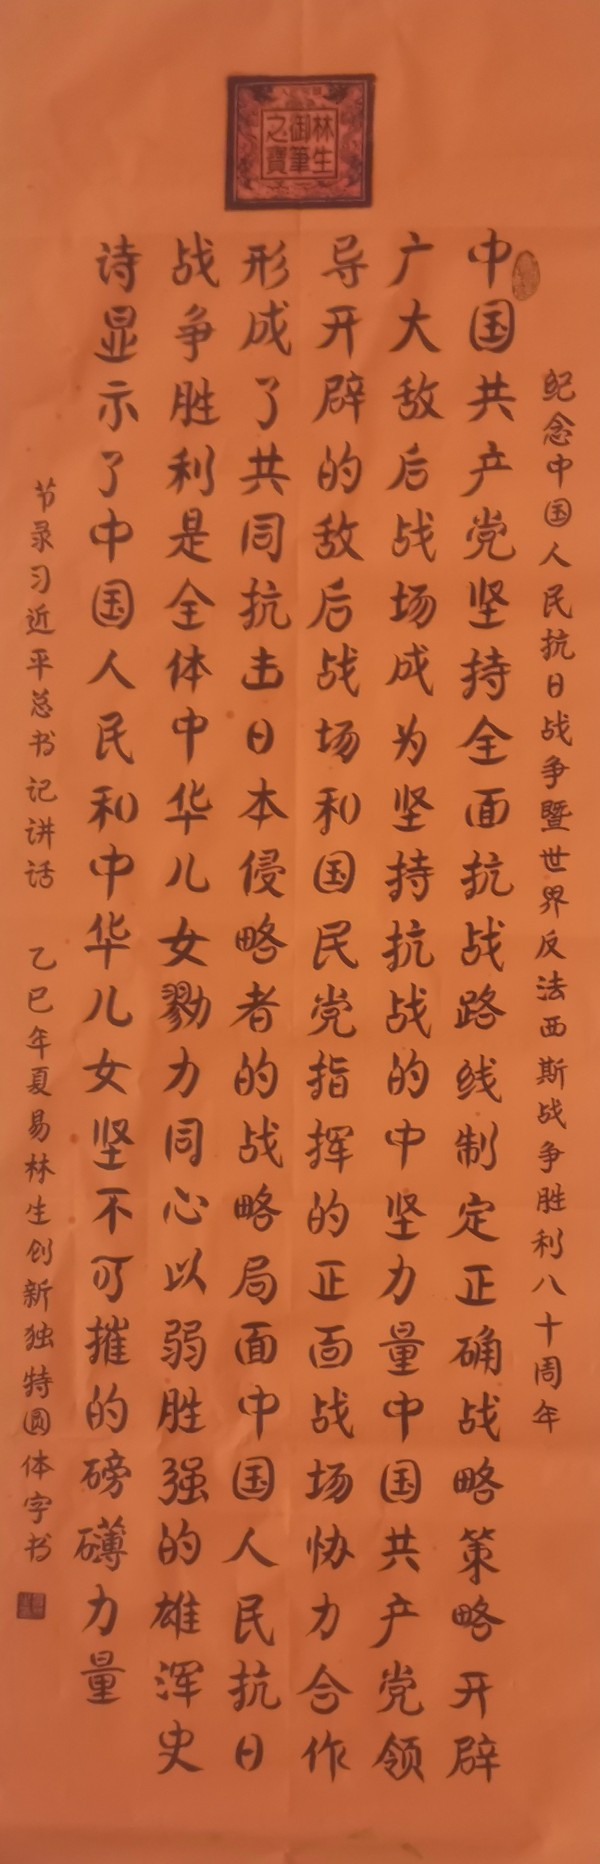 林生
御筆
之寶
纪念中国人民抗日战争暨世界反法西斯战争胜利八十周年
中国共产党坚持全面抗战路线制定正确战略策略开辟
广大敌后战场成为坚持抗战的中坚力量中国共产党领
导开辟的敌后战场和国民党指挥的正面战场协力合作
形成了共同抗击日本侵略者的战略局面中国人民抗日
战争胜利是全体中华儿女勠力同心以弱胜强的雄浑史
诗显示了中国人民和中华儿女坚不可摧的磅礴力量
节录习近平总书记讲话 乙巳年夏易林生创新独特圆体字书